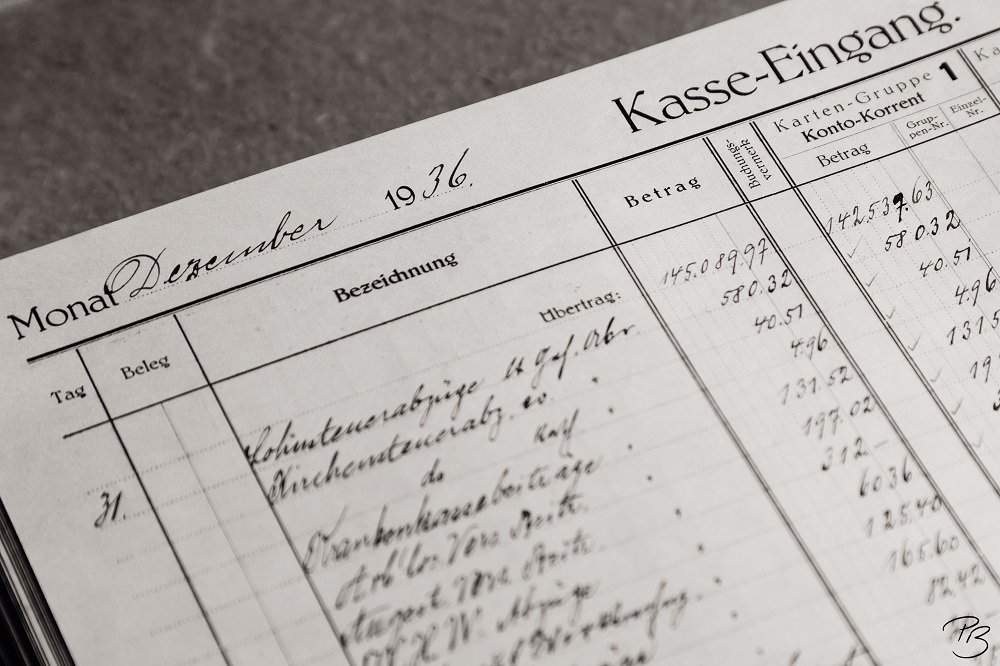 Kasse-Eingang.
Monat Dezember 1936.
Tag Beleg Bezeichnung Betrag Buchungs-vermerk Karten-Gruppe 1 Konto-Korrent Betrag Grup-pen-Nr. Einzel-Nr. Ka
Übertrag: 145.089.97 142.537.63
31. Lohnsteuerabzüge lt Gef. Abr. 580.32 580.32
Kirchensteuerabz. ev. 40.51 40.51
do Kath 4.96 4.96
Krankenkassebeiträge 131.52 131.5
Arb'los. Vers. Beitr. 197.02 19
Angest. Vers. Beitr. 312.-
W. H. W. Abzüge 60.36
125.40
165.60
82.42
PB